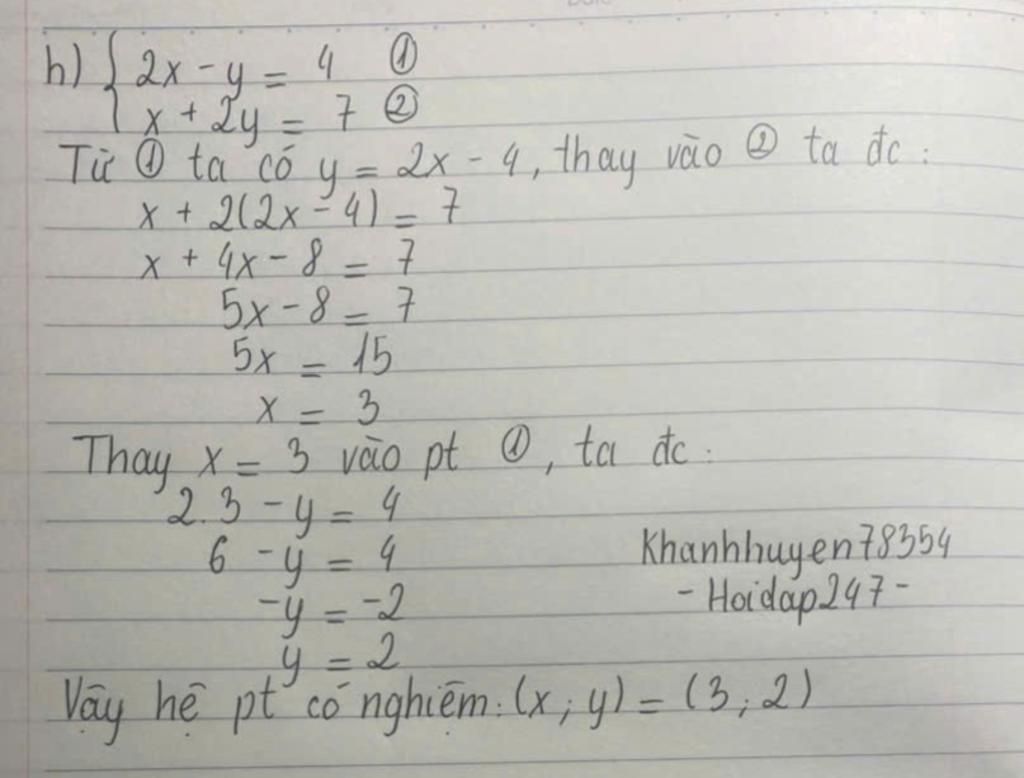 h) { 2x - y = 4 ①
x + 2y = 7 ②
Từ ① ta có y = 2x - 4, thay vào ② ta đc:
x + 2(2x - 4) = 7
x + 4x - 8 = 7
5x - 8 = 7
5x = 15
x = 3
Thay x = 3 vào pt ①, ta đc:
2.3 - y = 4
6 - y = 4
Khanhhuyen78354
-y = -2
- Hoidap247 -
y = 2
Vậy hệ pt có nghiệm: (x; y) = (3; 2)